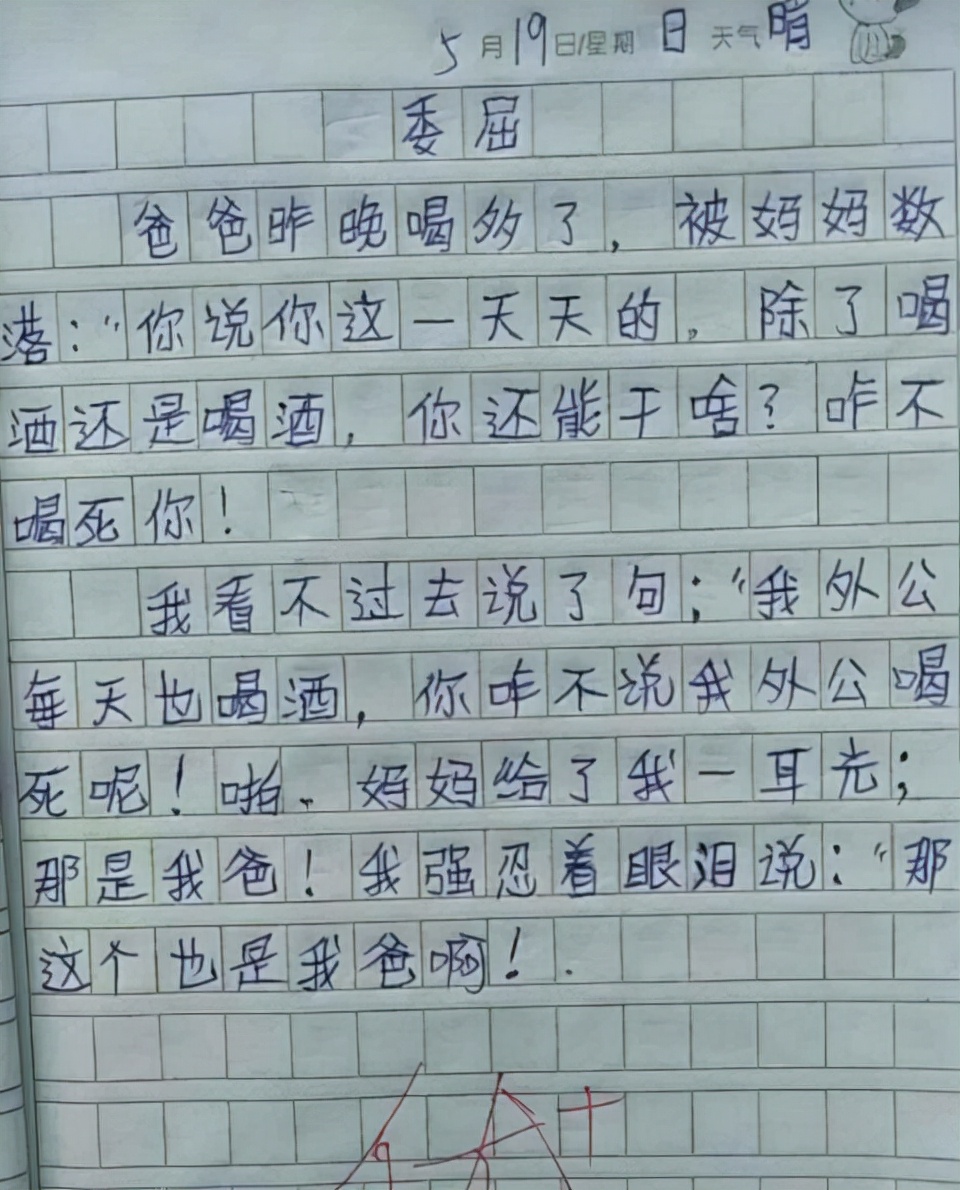 5月19日/星期 日 天气 晴
委屈
爸爸昨晚喝多了，被妈妈数
落："你说你这一天天的。除了喝
酒还是喝酒，你还能干啥？咋不
喝死你！
我看不过去说了句；"我外公
每天也喝酒，你咋不说我外公喝
死呢！啪、妈妈给了我一耳光；
那是我爸！我强忍着眼泪说："那
这个也是我爸啊！.
A+